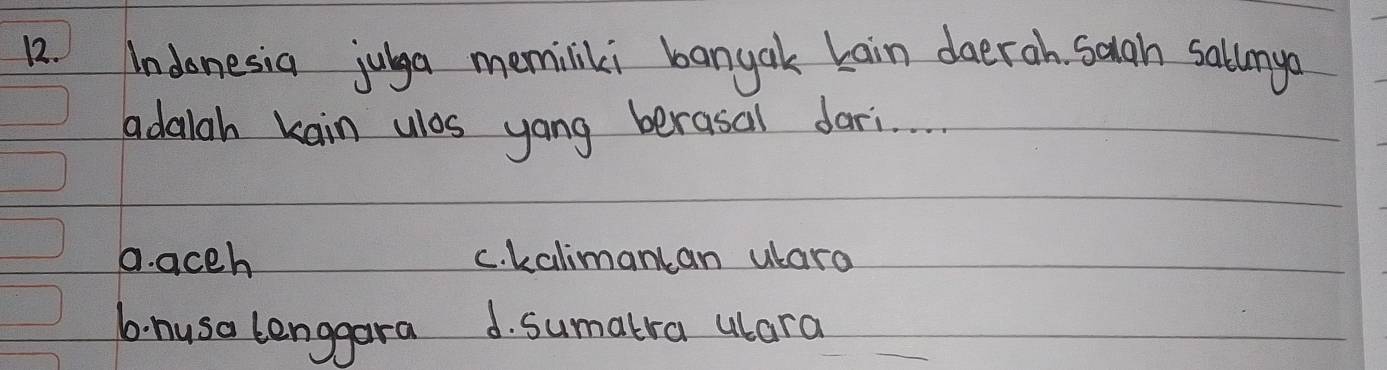 12. Indonesia juga memiliki banyak kain daerah. Salah satunya
adalah kain ulos yang berasal dari....
a. aceh c. kalimantan utara
b. nusa tenggara d. sumatra utara